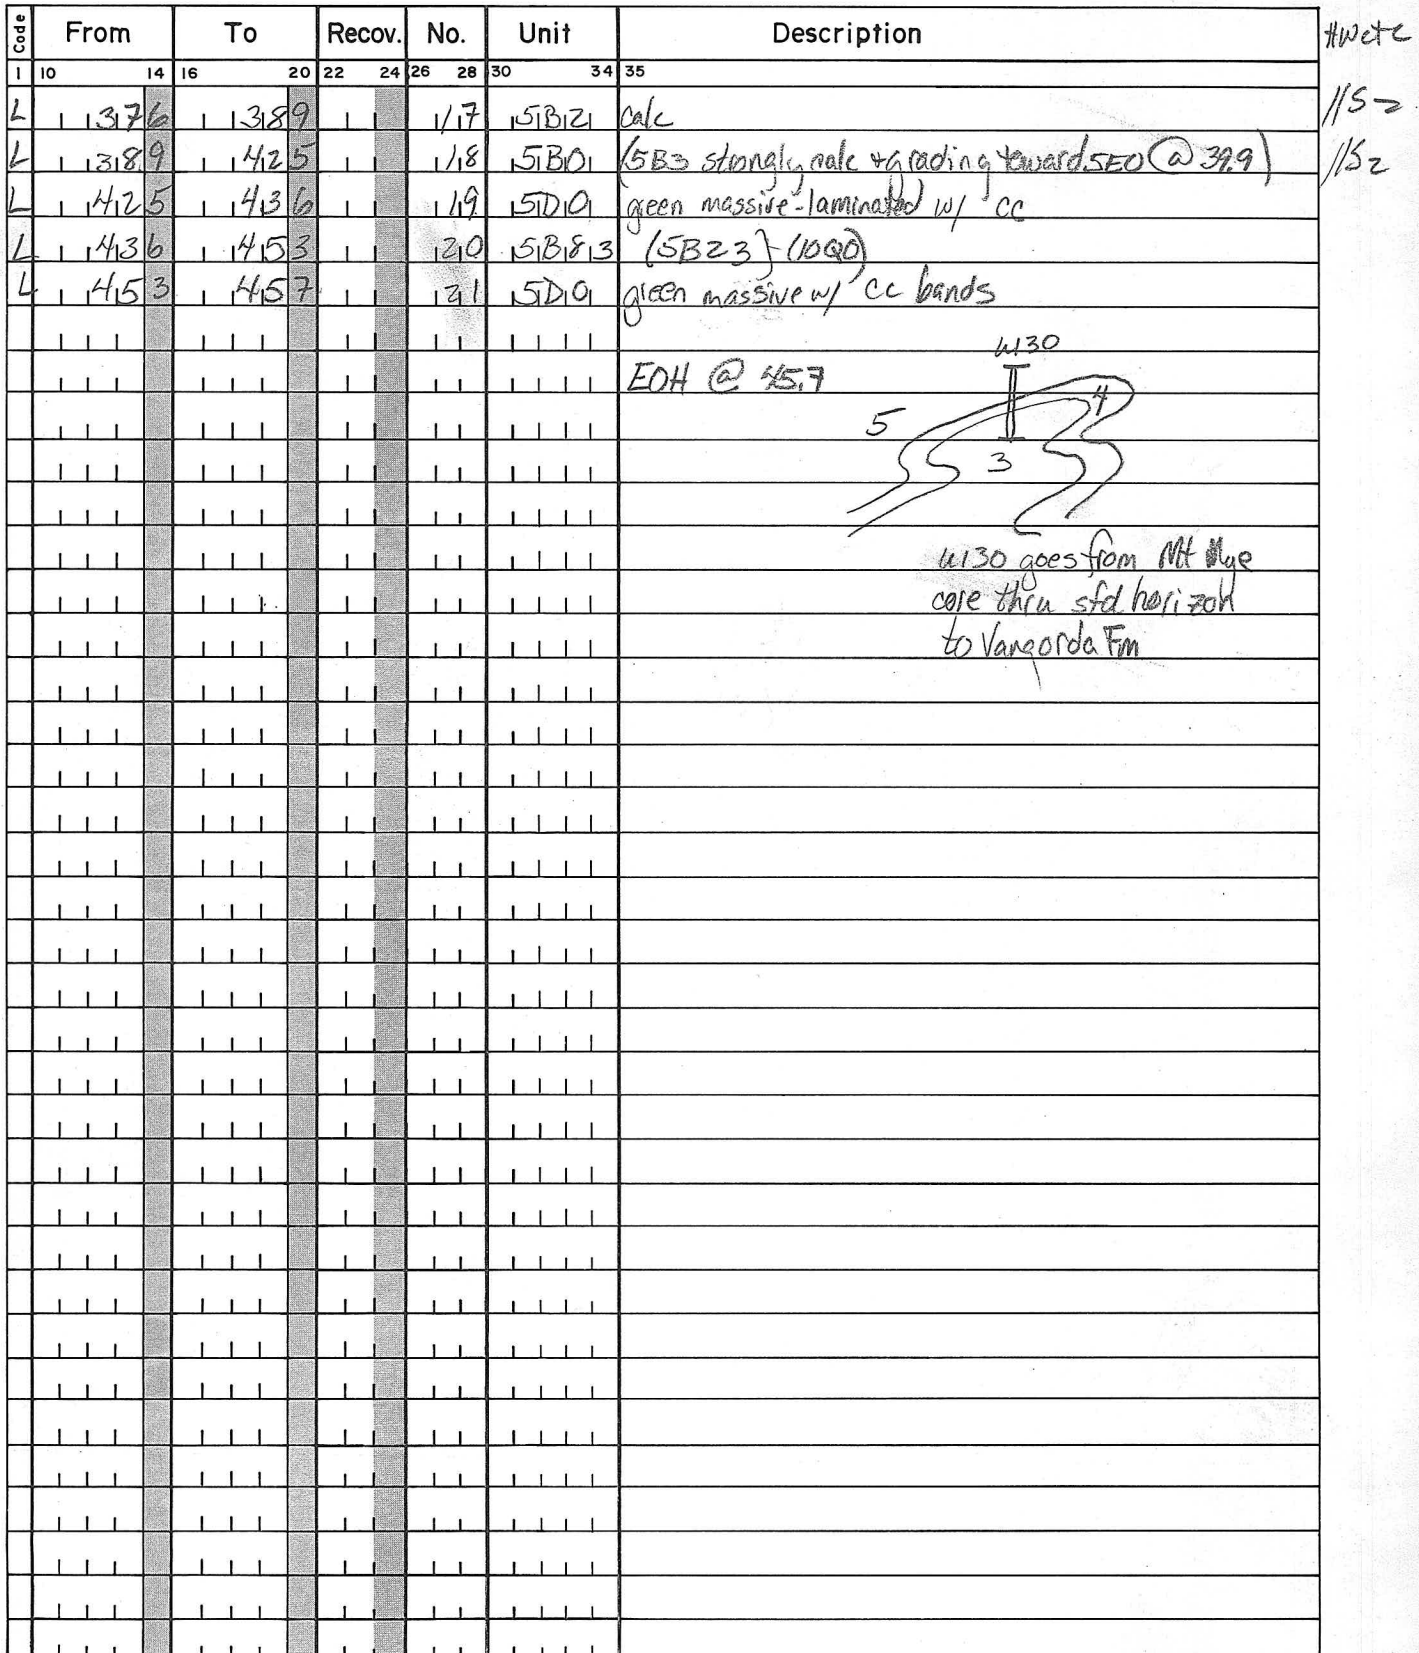 Code From To Recov. No. Unit Description
1 10 14 16 20 22 24 26 28 30 34 35
L 376 389 17 5B2 calc //S2
L 389 425 18 5B0 (5B3 strongly calc + grading toward 5E0 @ 39.9) //S2
L 425 436 19 5D0 green massive-laminated w/ cc
L 436 453 20 5B83 (5B23)-(10Q0)
L 453 457 21 5D0 green massive w/ cc bands
U130
EOH @ 45.7
4
5
3
U130 goes from Mt Mye
core thru sfd horizon
to Vangorda Fm